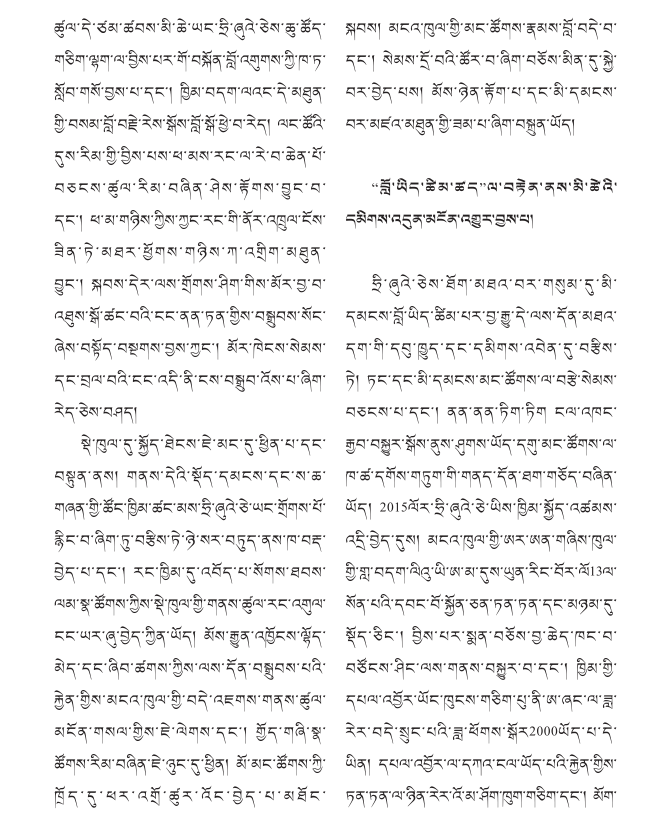 ཚུལ་དེ་ཙམ་ཚབས་མི་ཆེ་ཡང་ཧྲི་ཞུའེ་ཅེས་ཆུ་ཚོད་
གཅིག་ལྷག་ལ་བྱིས་པར་གོ་བསྐོན་བློ་འགུགས་ཀྱི་ཁ་ཏ་
སློབ་གསོ་བྱས་པ་དང་། ཁྱིམ་བདག་ལའང་དེ་མཐུན་
གྱི་བསམ་བློ་བརྗེ་རེས་སྒོས་བློ་སྒོ་ཕྱེ་བ་རེད། ལང་ཚོའི་
དུས་རིམ་གྱི་བྱིས་པས་ཕ་མས་རང་ལ་རེ་བ་ཆེན་པོ་
བཅངས་ཚུལ་རིམ་བཞིན་ཤེས་རྟོགས་བྱུང་བ་
དང་། ཕ་མ་གཉིས་ཀྱིས་ཀྱང་རང་གི་ནོར་འཁྲུལ་ངོས་
ཟིན་ཏེ་མཐར་ཕྱོགས་གཉིས་ཀ་འགྲིག་མཐུན་
བྱུང་། སྐབས་དེར་ལས་གྲོགས་ཤིག་གིས་མོར་བྱ་བ་
འཐུས་སྒོ་ཚང་བའི་ངང་ནན་ཏན་གྱིས་བསྒྲུབས་སོང་
ཞེས་བསྟོད་བསྔགས་བྱས་ཀྱང་། མོར་ཁེངས་སེམས་
དང་བྲལ་བའི་ངང་འདི་ནི་ངས་བསྒྲུབ་འོས་པ་ཞིག་
རེད་ཅེས་བཤད།
སྡེ་ཁུལ་དུ་སྐྱོད་ཐེངས་ཇེ་མང་དུ་ཕྱིན་པ་དང་
བསྟུན་ནས། གནས་དེའི་སྡོད་དམངས་དང་ས་ཆ་
གཞན་གྱི་ཚོང་ཁྱིམ་ཚང་མས་ཧྲི་ཞུའེ་ཅེ་ཡང་གྲོགས་པོ་
རྙིང་བ་ཞིག་ཏུ་བརྩིས་ཏེ་ཉེ་སར་བཏུད་ནས་ཁ་བརྡ་
བྱེད་པ་དང་། རང་ཁྱིམ་དུ་འབོད་པ་སོགས་ཐབས་
ལམ་སྣ་ཚོགས་ཀྱིས་སྡེ་ཁུལ་གྱི་གནས་ཚུལ་རང་འགུལ་
ངང་ཡར་ཞུ་བྱེད་ཀྱིན་ཡོད། མོས་རྒྱུན་འཁྱོངས་ལྷོད་
མེད་དང་ཞིབ་ཚགས་ཀྱིས་ལས་དོན་བསྒྲུབས་པའི་
རྐྱེན་གྱིས་མངའ་ཁུལ་གྱི་བདེ་འཇགས་གནས་ཚུལ་
མངོན་གསལ་གྱིས་ཇེ་ལེགས་དང་། གྱོད་གཞི་སྣ་
ཚོགས་རིམ་བཞིན་ཇེ་ཉུང་དུ་ཕྱིན། མོ་མང་ཚོགས་ཀྱི་
ཁྲོད་དུ་ཕར་འགྲོ་ཚུར་འོང་བྱེད་པ་མཐོང་
སྐབས། མངའ་ཁུལ་གྱི་མང་ཚོགས་རྣམས་བློ་བདེ་བ་
དང་། སེམས་དྲོ་བའི་ཚོར་བ་ཞིག་བཅོས་མིན་དུ་སྐྱེ་
བར་བྱེད་པས། མོས་ཉེན་རྟོག་པ་དང་མི་དམངས་
བར་མཛའ་མཐུན་གྱི་ཟམ་པ་ཞིག་བསྐྲུན་ཡོད།
“བློ་ཡིད་ཚིམ་ཚད”ལ་བརྟེན་ནས་མི་ཚེའི་
དམིགས་འདུན་མངོན་འགྱུར་བྱས་པ།
ཧྲི་ཞུའེ་ཅེས་ཐོག་མཐའ་བར་གསུམ་དུ་མི་
དམངས་བློ་ཡིད་ཚིམ་པར་བྱ་རྒྱུ་དེ་ལས་དོན་མཐའ་
དག་གི་དབུ་ཁྲིད་དང་དམིགས་འབེན་དུ་བརྩིས་
ཏེ། ཏང་དང་མི་དམངས་མང་ཚོགས་ལ་བརྩེ་སེམས་
བཅངས་པ་དང་། ནན་ནན་ཏིག་ཏིག ངལ་འཁང་
རྒྱབ་བསྐྱུར་སྒོས་ནུས་ཤུགས་ཡོད་དགུ་མང་ཚོགས་ལ་
ཁ་ཚ་དགོས་གཏུག་གི་གནད་དོན་ཐག་གཅོད་བཞིན་
ཡོད། 2015ལོར་ཧྲི་ཞུའེ་ཅེ་ཡིས་ཁྱིམ་སྐྱོད་འཚམས་
འདྲི་བྱེད་དུས། མངའ་ཁུལ་གྱི་ཨར་ཨན་གཞིས་ཁུལ་
གྱི་གླ་བདག་ལིའུ་ཡི་ཨ་མ་དུས་ཡུན་རིང་བོར་ལོ13ལ་
སོན་པའི་དབང་པོ་སྐྱོན་ཅན་ཏན་ཏན་དང་མཉམ་དུ་
སྡོད་ཅིང་། བྱིས་པར་སྨན་བཅོས་བྱ་ཆེད་ཁང་བ་
བཙོངས་ཤིང་ལས་གནས་བསྐྱུར་བ་དང་། ཁྱིམ་གྱི་
དཔལ་འབྱོར་ཡོང་ཁུངས་གཅིག་པུ་ནི་ཨ་ཞང་ལ་ཟླ་
རེར་བདེ་སྲུང་པའི་ཟླ་ཕོགས་སྒོར2000ཡོད་པ་དེ་
ཡིན། དཔལ་འབྱོར་ལ་དཀའ་ངལ་ཡོད་པའི་རྐྱེན་གྱིས་
ཏན་ཏན་ལ་ཉིན་རེར་འོ་མ་ཤོག་ཁུག་གཅིག་དང་། མོག་